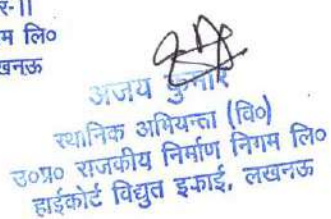 र-II
म लि०
खनऊ
अजय कुमार
स्थानिक अभियन्ता (वि०)
उ०प्र० राजकीय निर्माण निगम लि०
हाईकोर्ट विद्युत इकाई, लखनऊ